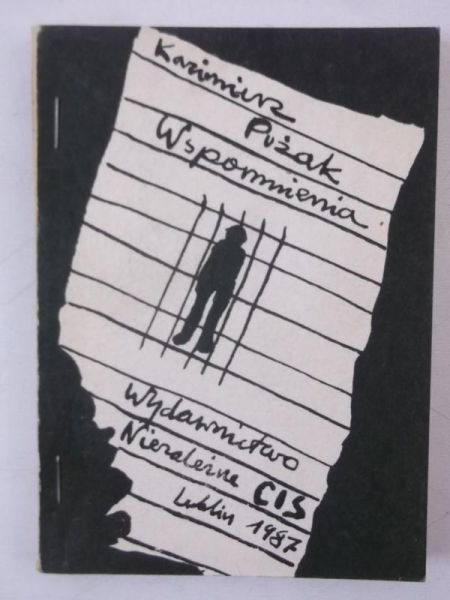 Kazimierz
Pużak
Wspomnienia
Wydawnictwo
Niezależne CIS
Lublin 1987